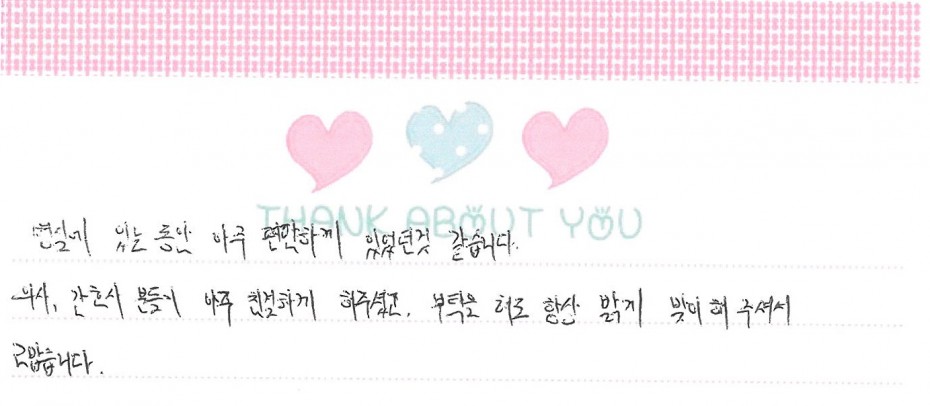 THANK ABOUT YOU
병실에 있는 동안 아주 편안하게 있었던것 같습니다.
의사, 간호사 분들이 아주 친절하게 해주셨고, 부탁을 해도 항상 밝게 맞이해 주셔서
고맙습니다.